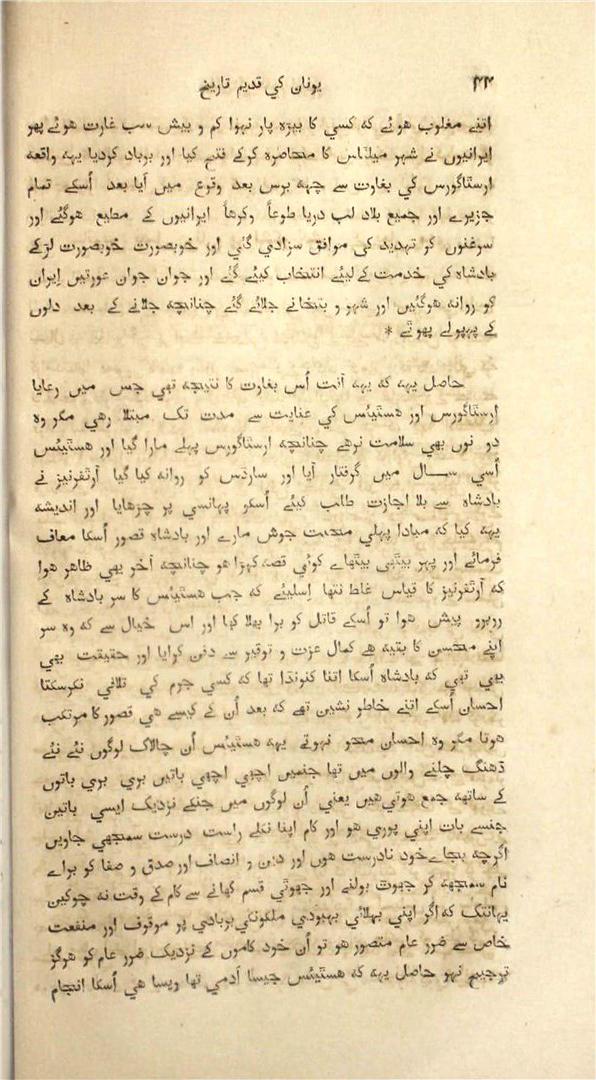 ۴۴ یونان کي قدیم تاریخ
اتنے مغلوب هوئے که کسي کا بیڑه پار نہوا کم و بیش سب غارت هوئے پهر
ایرانیوں نے شہر میلٹس کا محاصره کرکے فتح کیا اور برباد کردیا یہه واقعه
ارسٹاگورس کي بغارت سے چهه برس بعد وقوع میں آیا بعد اُسکے تمام
جزیرے اور جمیع بلاد لب دریا طوعاً وکرهاً ایرانیوں کے مطیع هوگئے اور
سرغنوں کو تہدید کی موافق سزادي گئي اور خوبصورت خوبصورت لڑکے
بادشاه کي خدمت کے لیئے انتخاب کیئے گئے اور جوان جوان عورتیں اِیران
کو روانه هوگئیں اور شہر و بتخانے جلائے گئے چنانچه جلانے کے بعد دلوں
کے پهپولے پهوٹے *
حاصل یہه که یہه آفت اُس بغارت کا نتیجه تهي جس میں رعایا
ارسٹاگورس اور هسٹیئس کي عنایت سے مدت تک مبتلا رهي مگر وه
دو نوں بهي سلامت نرهے چنانچه ارسٹاگورس پہلے مارا گیا اور هسٹیئس
اُسي ســال میں گرفتار آیا اور سارڈس کو روانه کیا گیا آرٹفرنیز نے
بادشاه سے بلا اجازت طلب کیئے اُسکو پهانسي پر چڑهایا اور اندیشه
یہه کیا که مبادا پہلي محبت جوش مارے اور بادشاه قصور اُسکا معاف
فرمائے اور پهر بیٹهے بیٹهاے کوئي قصه کهڑا هو چنانچه آخر یهي ظاهر هوا
که آرٹفرنیز کا قیاس غلط نتها اِسلیئے که جب هسٹیئس کا سر بادشاه کے
روبرو پیش هوا تو اُسکے قاتل کو برا بهلا کہا اور اس خیال سے که وه سر
اپنے محسن کا بقیه هے کمال عزت و توقیر سے دفن کرایا اور حقیقت بهي
یہي تهي که بادشاه اُسکا اتنا کنونڈا تها که کسي جرم کي تلافي نکرسکتا
احسان اُسکے اتنے خاطر نشین تهے که بعد اُن کے کیسے هي قصور کا مرتکب
هوتا مگر وه احسان محو نہوتے یہه هسٹیئس اُن چالاک لوگوں نئے نئے
ڈهنگ چلنے والوں میں تها جنمیں اچهي اچهي باتیں بري بري باتوں
کے ساتهه جمع هوتي هیں یعني اُن لوگوں میں جنکے نزدیک ایسي باتین
جنسے بات اپني پوري هو اور کام اپنا نکلے راست درست سمجهي جاویں
اگرچه بجاے خود نادرست هوں اور دین و انصاف اور صدق و صفا کو براے
نام سمجهه کر جهوٹ بولنے اور جهوٹي قسم کهانے سے کام کے وقت نه چوکین
یہانتک که اگر اپني بهلائي بہبودي ملکونکي بربادي پر موقوف اور منفعت
خاص سے ضرر عام متصور هو تو اُن خود کاموں کے نزدیک ضرر عام کو هرگز
ترجیح نہو حاصل یہه که هسٹیئس جیسا آدمي تها ویسا هي اُسکا انجام